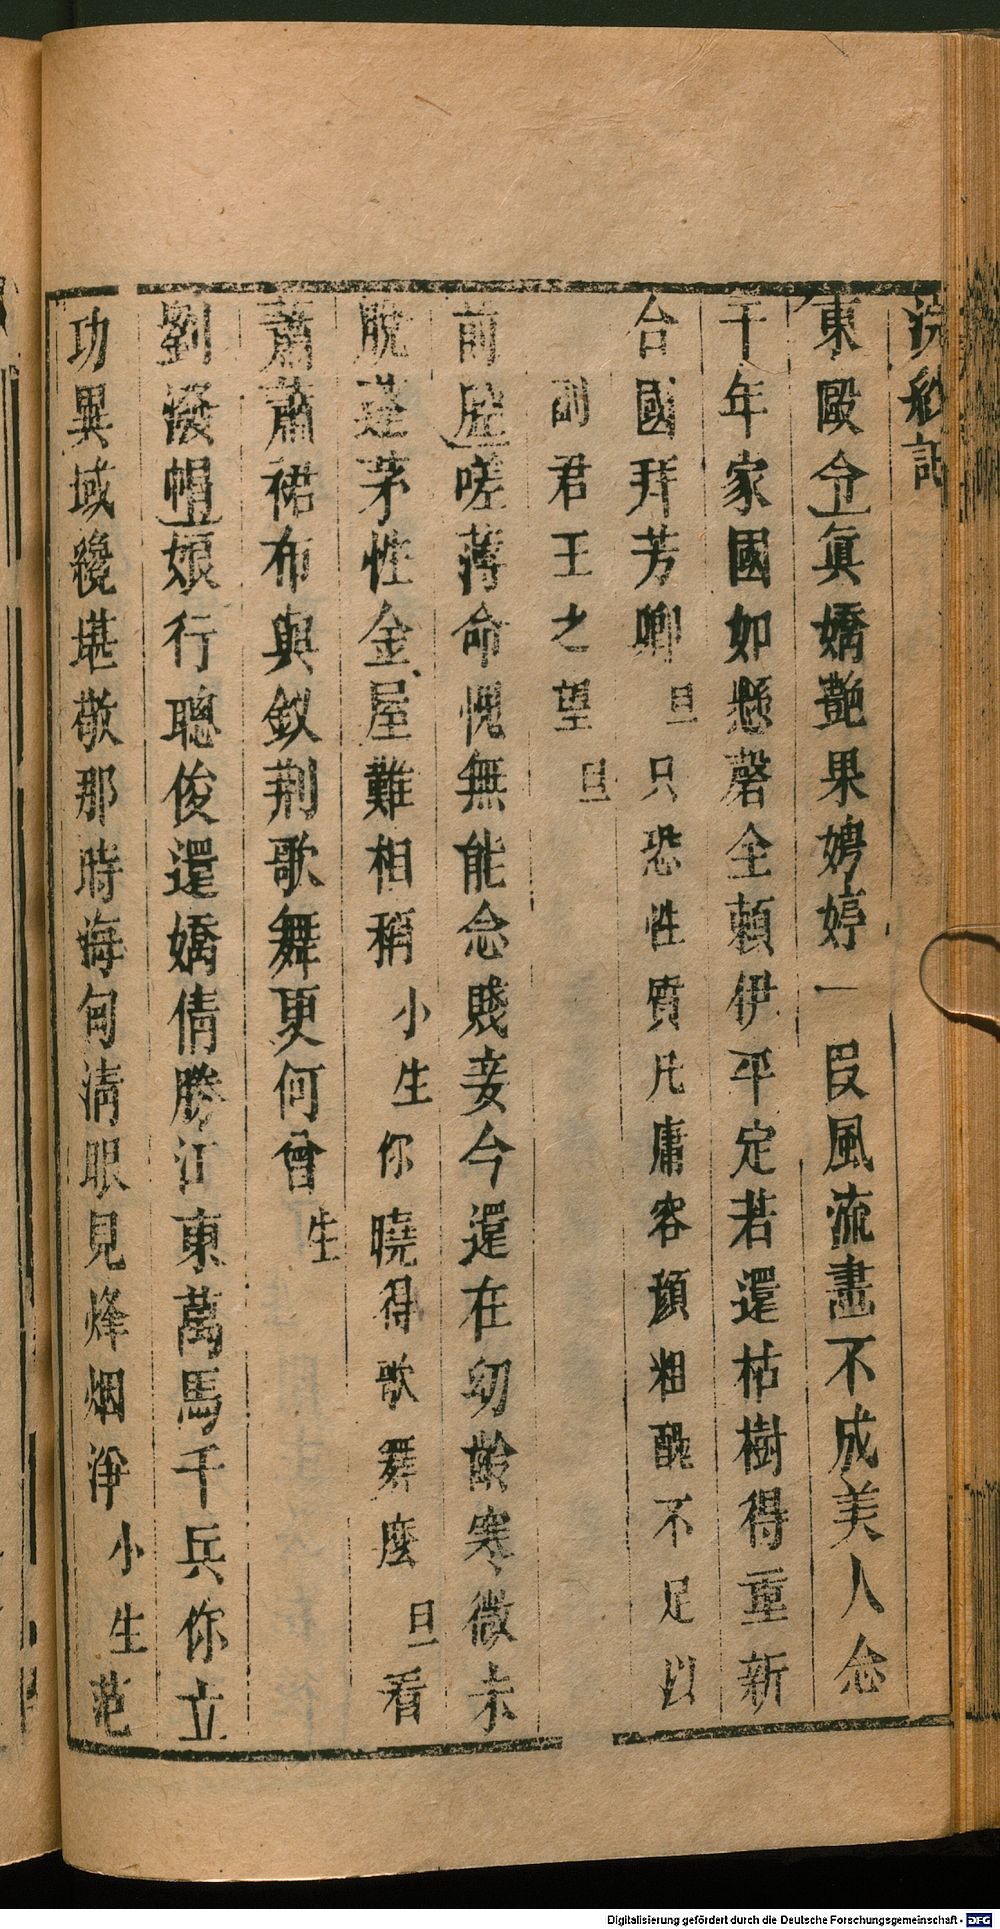 浣紗記
東甌令眞嬌艷果娉婷一段風流畫不成美人念
千年家國如懸磬全賴伊平定若還枯樹得重新
台國拜芳卿旦只恐性質凡庸容顔粗醜不足以
副君王之望旦
前腔嗟薄命愧無能念賤妾今還在幼齡寒微未
脫蓬茅性金屋難相稱小生你曉得歌舞麼旦看
蕭蕭裙布與釵荆歌舞更何曾生
劉潑帽娘行聰俊還嬌倩勝江東萬馬千兵你立
功異域纔堪敬那時海甸淸眼見烽烟淨小生范
Digitalisierung gefördert durch die Deutsche Forschungsgemeinschaft - DFG